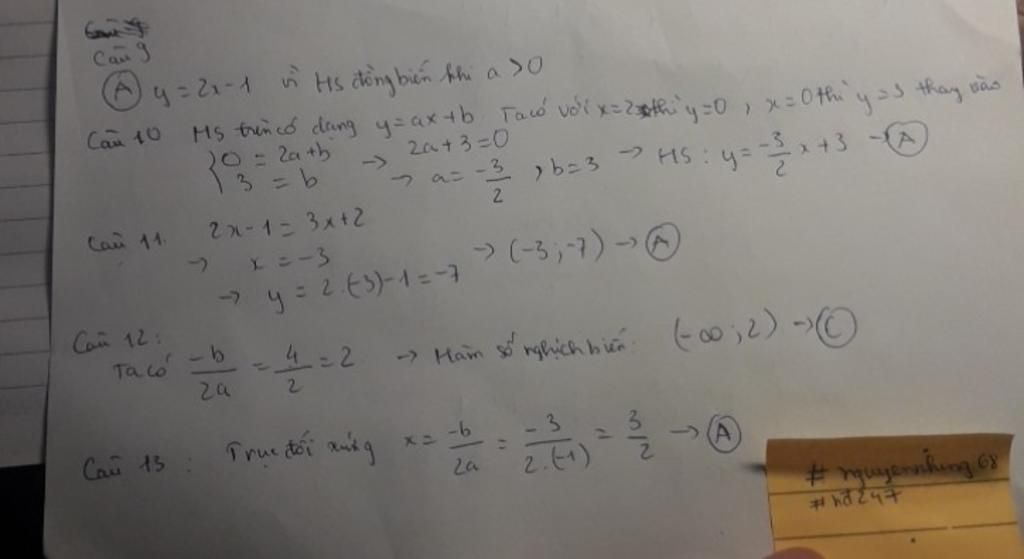 Câu 9
(A) y = 2x - 1 vì HS đồng biến khi a > 0
Câu 10 HS trên có dạng y = ax + b. Ta có với x = 2 thì y = 0, x = 0 thì y = 3 thay vào
{ 0 = 2a + b → 2a + 3 = 0
3 = b → a = -3/2, b = 3 → HS: y = -3/2 x + 3 → (A)
Câu 11. 2x - 1 = 3x + 2
→ x = -3
→ y = 2.(-3) - 1 = -7 → (-3; -7) → (A)
Câu 12:
Ta có -b/2a = 4/2 = 2 → Hàm số nghịch biến: (-∞; 2) → (C)
Câu 13: Trục đối xứng x = -b/2a = -3/2.(-1) = 3/2 → (A)
# nguyennhung68
# hd247